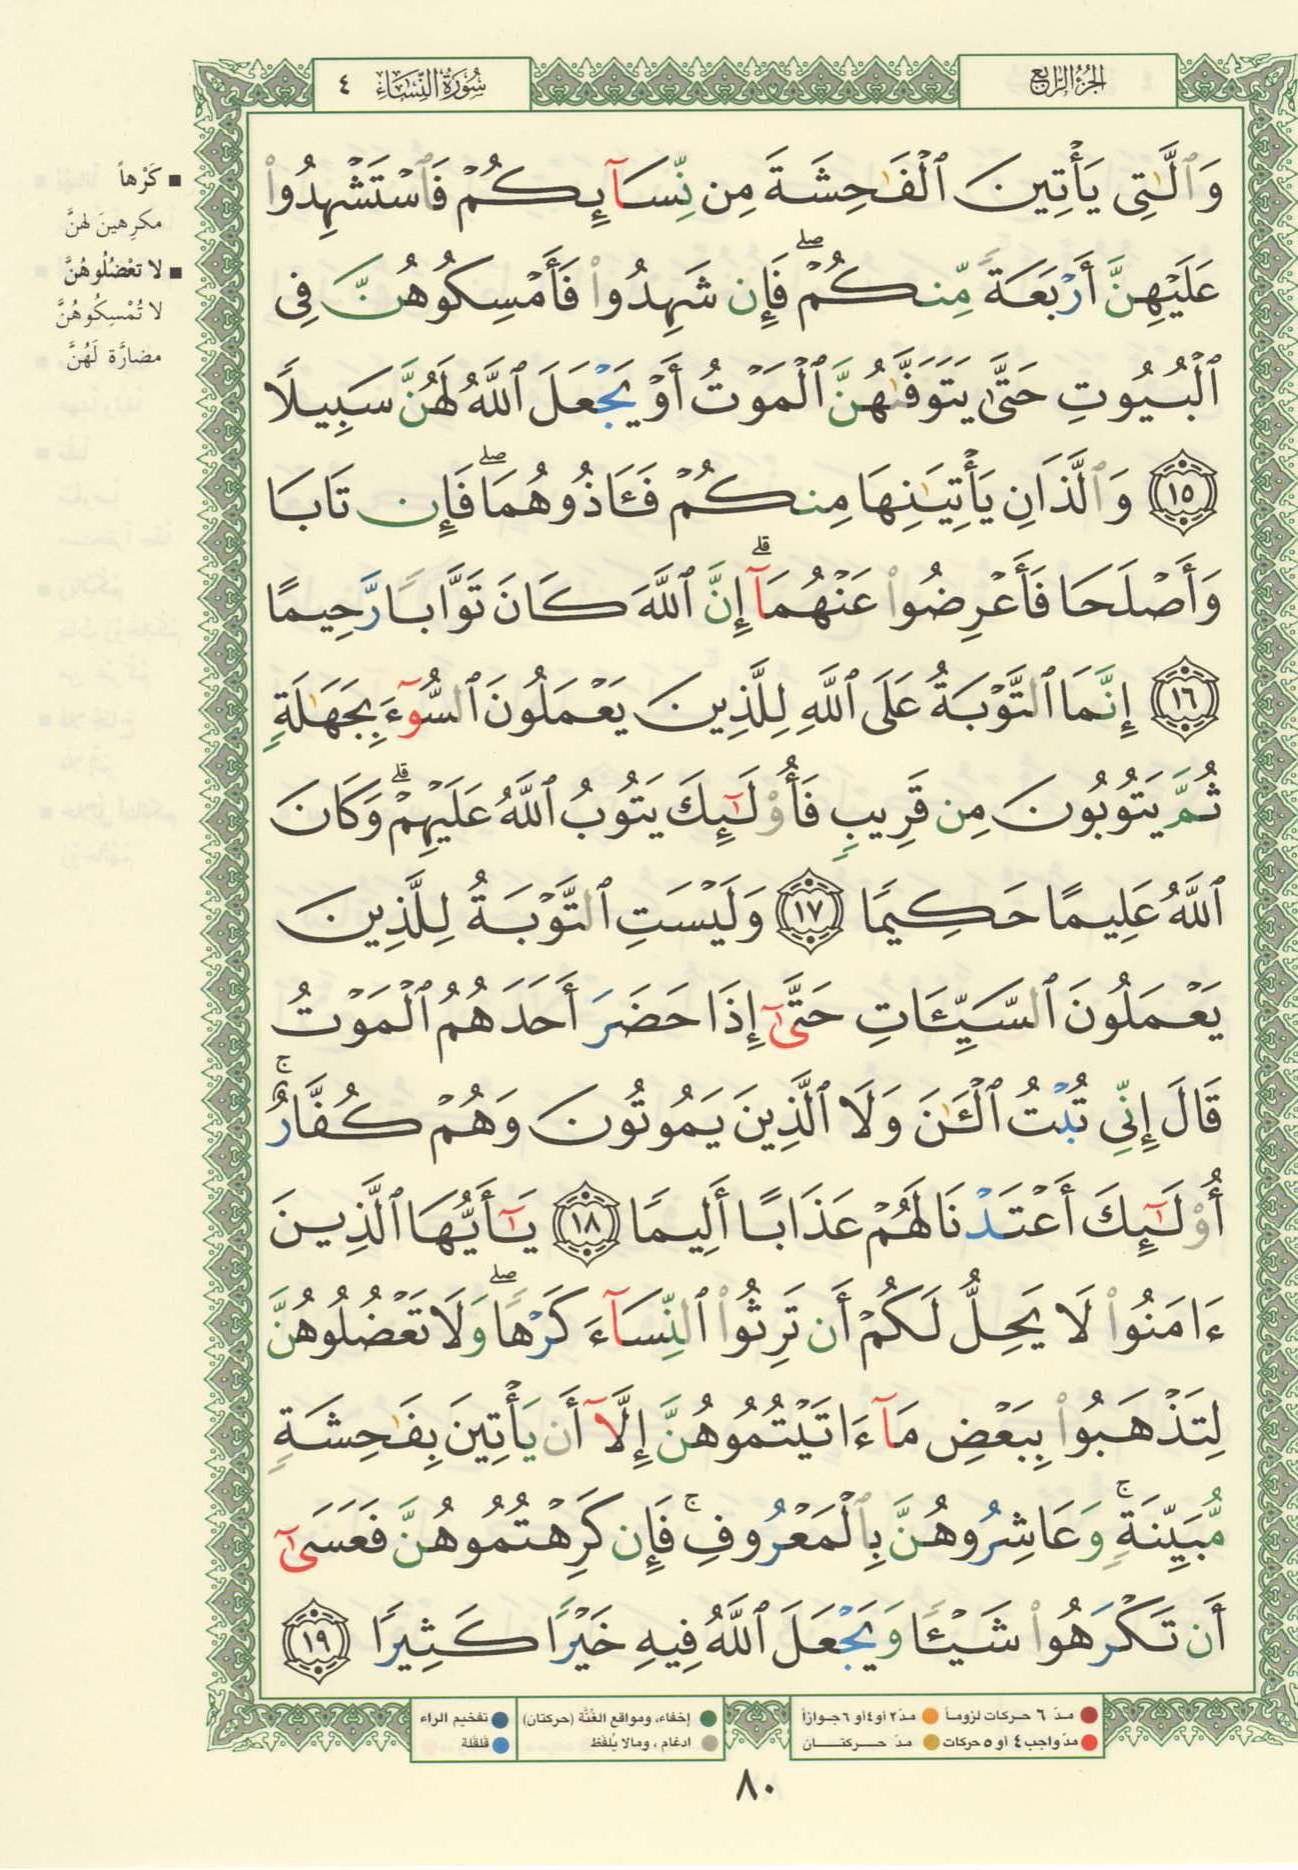 سُورَةُ النِّسَاءِ ٤
الجُزْءُ الرَّابِعُ
وَٱلَّـٰتِى يَأْتِينَ ٱلْفَـٰحِشَةَ مِن نِّسَآئِكُمْ فَٱسْتَشْهِدُوا۟
عَلَيْهِنَّ أَرْبَعَةً مِّنكُمْ ۖ فَإِن شَهِدُوا۟ فَأَمْسِكُوهُنَّ فِى
ٱلْبُيُوتِ حَتَّىٰ يَتَوَفَّىٰهُنَّ ٱلْمَوْتُ أَوْ يَجْعَلَ ٱللَّهُ لَهُنَّ سَبِيلًا
١٥ وَٱلَّذَانِ يَأْتِيَـٰنِهَا مِنكُمْ فَـَٔاذُوهُمَا ۖ فَإِن تَابَا
وَأَصْلَحَا فَأَعْرِضُوا۟ عَنْهُمَآ ۗ إِنَّ ٱللَّهَ كَانَ تَوَّابًا رَّحِيمًا
١٦ إِنَّمَا ٱلتَّوْبَةُ عَلَى ٱللَّهِ لِلَّذِينَ يَعْمَلُونَ ٱلسُّوٓءَ بِجَهَـٰلَةٍ
ثُمَّ يَتُوبُونَ مِن قَرِيبٍ فَأُو۟لَـٰٓئِكَ يَتُوبُ ٱللَّهُ عَلَيْهِمْ ۗ وَكَانَ
ٱللَّهُ عَلِيمًا حَكِيمًا ١٧ وَلَيْسَتِ ٱلتَّوْبَةُ لِلَّذِينَ
يَعْمَلُونَ ٱلسَّيِّـَٔاتِ حَتَّىٰٓ إِذَا حَضَرَ أَحَدَهُمُ ٱلْمَوْتُ
قَالَ إِنِّى تُبْتُ ٱلْـَٔـٰنَ وَلَا ٱلَّذِينَ يَمُوتُونَ وَهُمْ كُفَّارٌ ۚ
أُو۟لَـٰٓئِكَ أَعْتَدْنَا لَهُمْ عَذَابًا أَلِيمًا ١٨ يَـٰٓأَيُّهَا ٱلَّذِينَ
ءَامَنُوا۟ لَا يَحِلُّ لَكُمْ أَن تَرِثُوا۟ ٱلنِّسَآءَ كَرْهًا ۖ وَلَا تَعْضُلُوهُنَّ
لِتَذْهَبُوا۟ بِبَعْضِ مَآ ءَاتَيْتُمُوهُنَّ إِلَّآ أَن يَأْتِينَ بِفَـٰحِشَةٍ
مُّبَيِّنَةٍ ۚ وَعَاشِرُوهُنَّ بِٱلْمَعْرُوفِ ۚ فَإِن كَرِهْتُمُوهُنَّ فَعَسَىٰٓ
أَن تَكْرَهُوا۟ شَيْـًٔا وَيَجْعَلَ ٱللَّهُ فِيهِ خَيْرًا كَثِيرًا ١٩
■ كَرْهاً
مكرِهينَ لهنَّ
■ لا تعْضُلُوهُنَّ
لا تُمْسِكُوهُنَّ
مضارَّة لَهُنَّ
مدّ ٦ حركات لزوماً ● مدّ ٢ أو ٤ أو ٦ جوازاً
مدّ واجب ٤ أو ٥ حركات ● مدّ حركتان
إخفاء، ومواقع الغُنَّة (حركتان)
ادغام، ومالا يُلفَظ
تفخيم الراء
قلقلة
٨٠